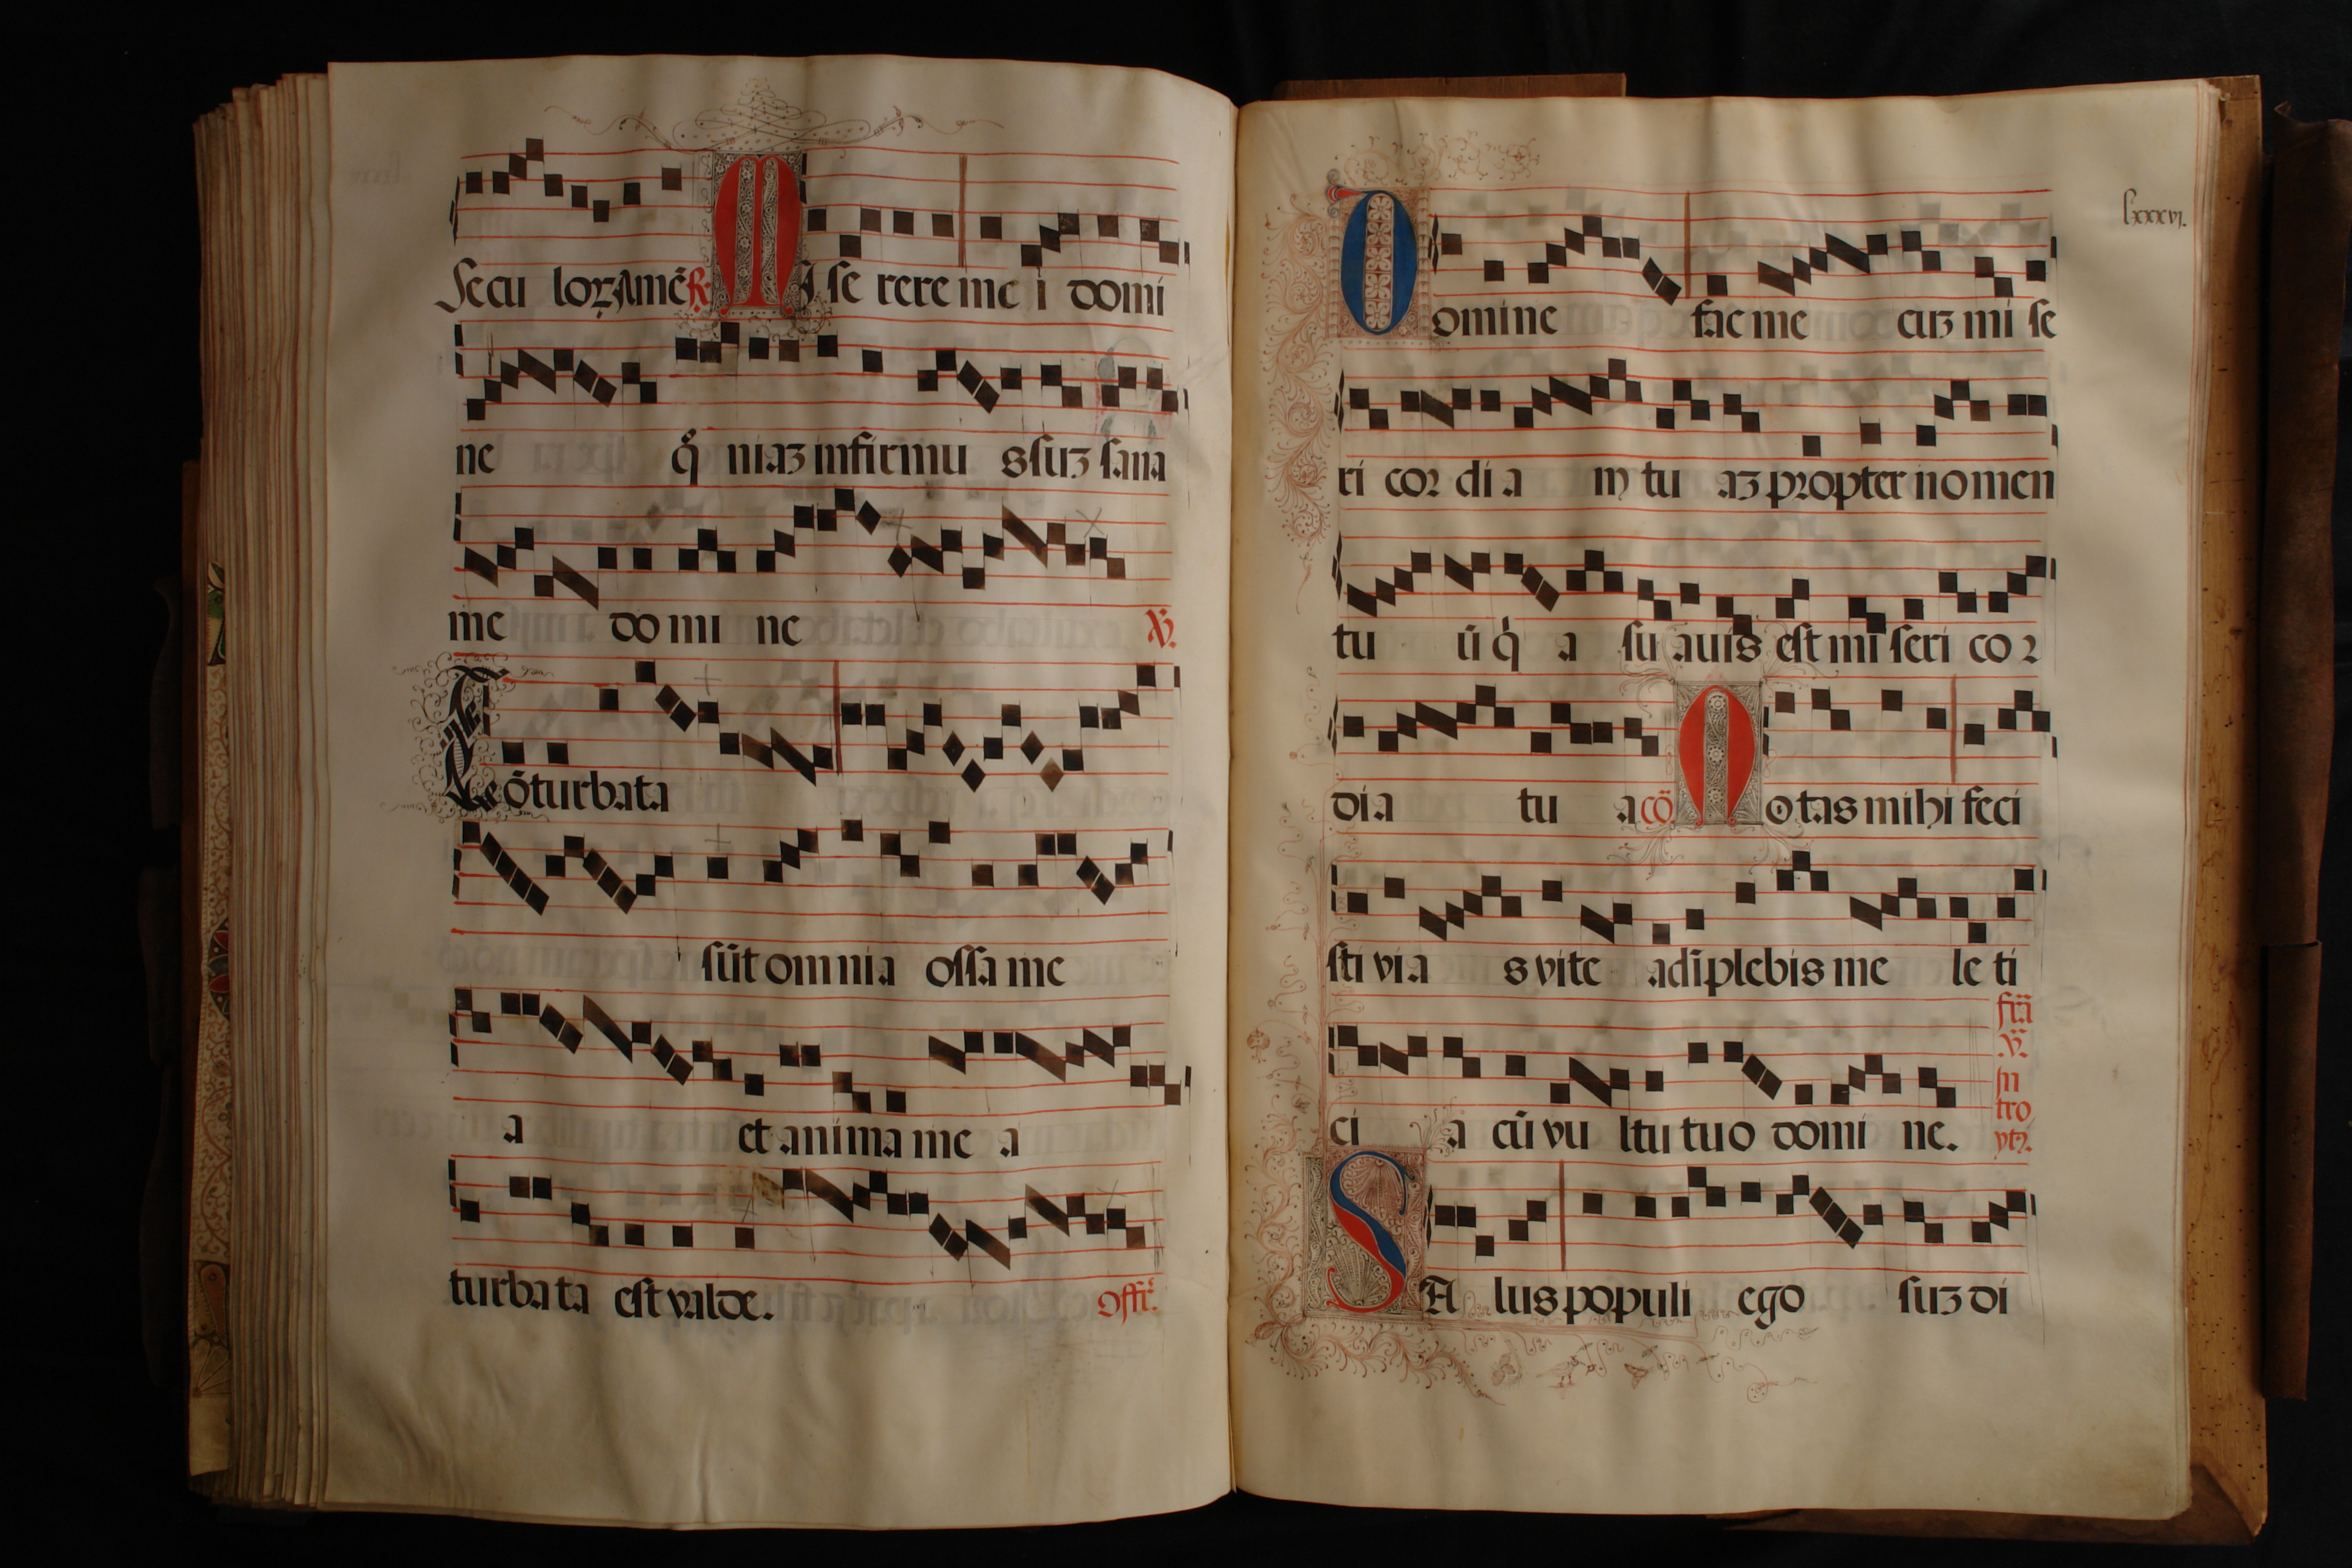 Secu loꝝ Amē ℟ MI se rere me i domi
ne qm̄ niaꝫ infirmu s suꝫ sana
me do mi ne ℣.
Cōturbata
sūt omnia ossa me
a et anima me a
turbata est valde. Offr̄.
lxxxvj.
Domine fac me cuꝫ mi se
ri cor di a m tu aꝫ propter nomen
tu ū q a su auis est mi seri co r
dia tu a cō Notas mihi feci
sti via s vite adīplebis me le ti
ci a cū vu ltu tuo domi ne.
fr̄a
v.
In
tro
ytꝰ.
SA lus populi ego suꝫ di